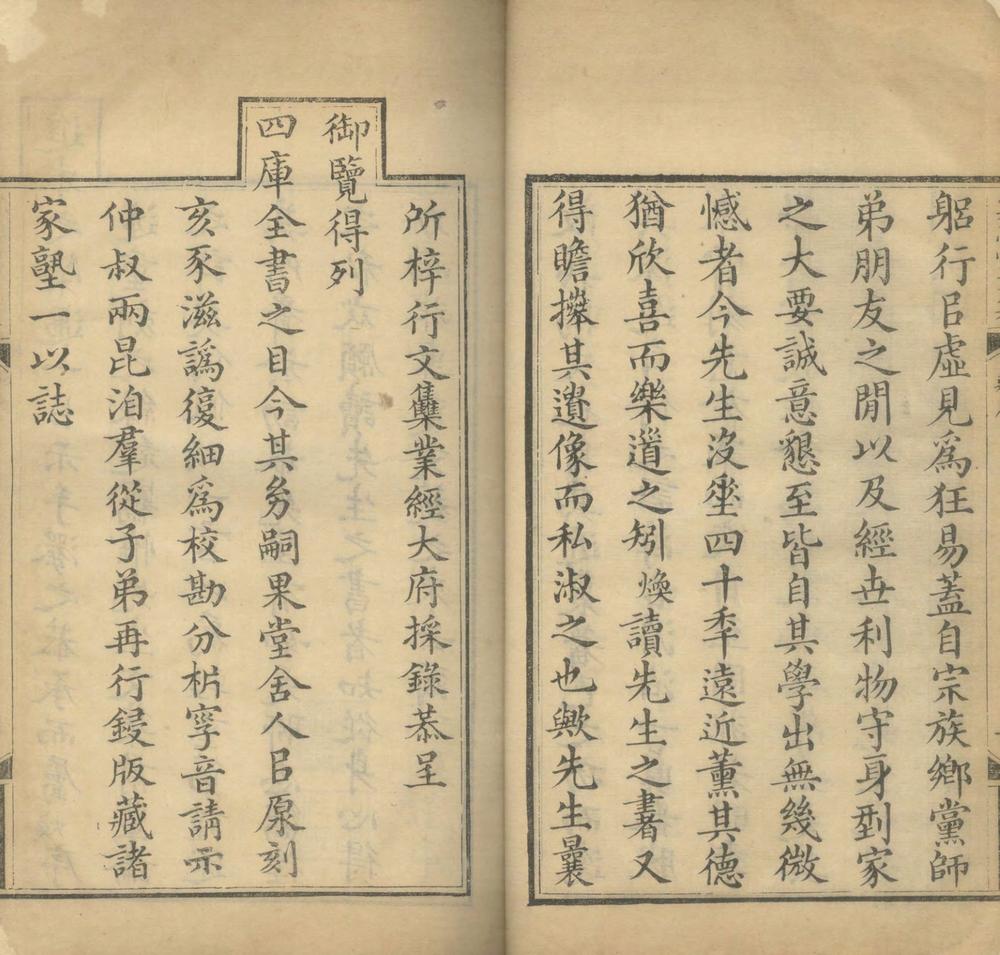 躳行㠯虛見爲狂易蓋自宗族鄉黨師
弟朋友之閒以及經世利物守身型家
之大要誠意懇至皆自其學出無幾微
憾者今先生沒垂四十秊遠近薰其德
猶欣喜而樂道之矧煥讀先生之書又
得瞻㩴其遺像而私淑之也歟先生曩
所梓行文集業經大府採錄恭呈
御覽得列
四庫全書之目今其冢嗣果堂舍人㠯原刻
亥豕滋譌復細爲校勘分析字音請示
仲叔兩昆洎羣從子弟再行鋟版藏諸
家塾一以誌